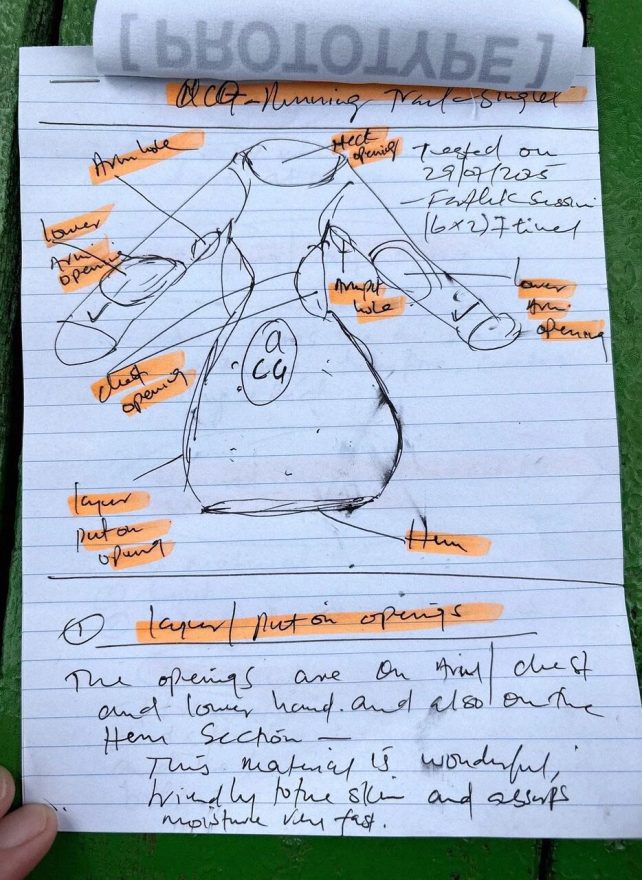 [PROTOTYPE]
ACG-Running Trail-Singlet
Arm hole
Neck opening
Tested on
29/07/2025
- Fartlek Session
(6x2) 7 times
lower
Arm
opening
Armpit
hole
lower
Arm
opening
chest
opening
a
CG
layer
put on
opening
Hem
① layer/put on openings
The openings are on Arm/chest
and lower hand. and also on the
Hem Section —
This material is wonderful,
friendly to the skin and absorps
moisture very fast.